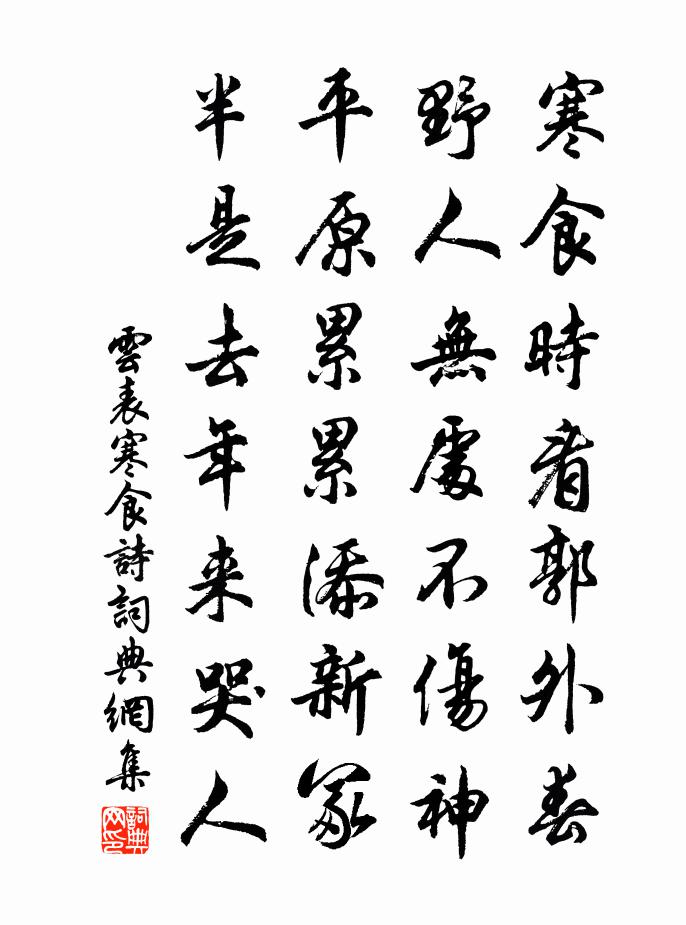 寒食時看郭外春
野人無處不傷神
平原累累添新冢
半是去年来哭人
雲表寒食詩詞典網集
詞典网印